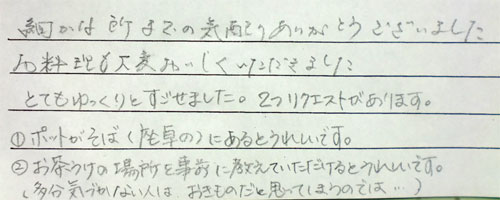 細かな所までの気配りありがとうございました
お料理も大変おいしくいただきました
とてもゆっくりとすごせました。2つリクエストがあります。
①ポットがそば(座卓の)にあるとうれしいです。
②お茶うけの場所を事前に教えていただけるとうれしいです。
(多分気づかない人は、おきものだと思ってしまうのでは…)